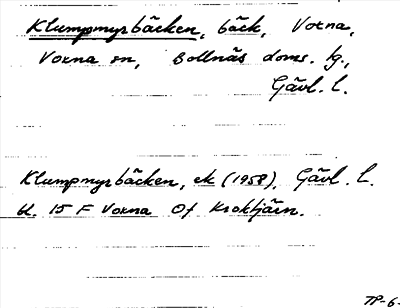 Klumpmyrbäcken, bäck, Voxna,
Voxna sn, Bollnäs doms. tg.,
Gävl. l.
Klumpmyrbäcken, ek (1958), Gävl. l.
bl. 15 F Voxna Of Kroktjärn.
TP-6-